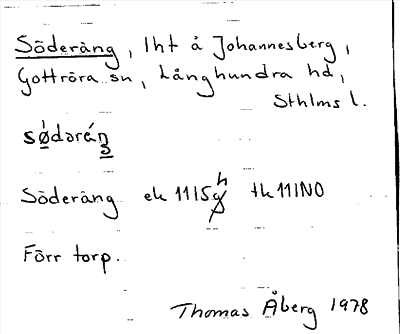 Söderäng, lht å Johannesberg,
Gottröra sn, Långhundra hd,
Sthlms l.
sø̀dərę́ŋ
Söderäng ek 11I5h tk 11INO
Förr torp.
Thomas Åberg 1978